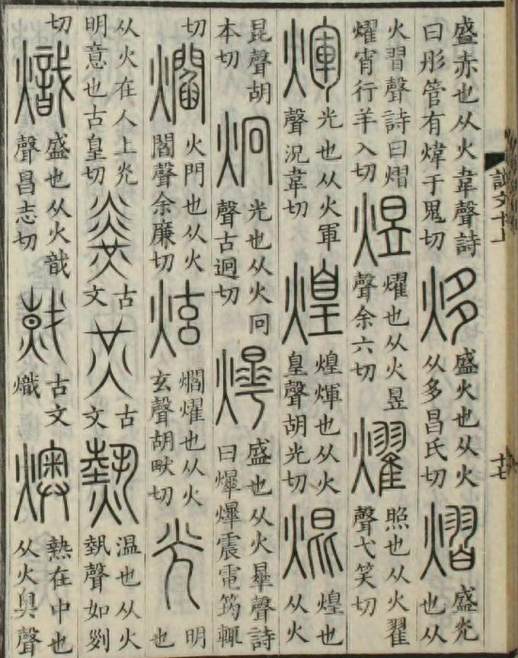 盛赤也从火韋聲詩
曰彤管有煒于鬼切
㶴
盛火也从火
从多昌氏切
熠
盛光
也从
火習聲詩曰熠
燿宵行羊入切
煜
燿也从火昱
聲余六切
燿
照也从火翟
聲弋笑切
煇
光也从火軍
聲況韋切
煌
煌煇也从火
皇聲胡光切
焜
煌也
从火
昆聲胡
本切
炯
光也从火冋
聲古迥切
爗
盛也从火曅聲詩
曰爗爗震電筠輒
切
爓
火門也从火
閻聲余廉切
炫
爓燿也从火
玄聲胡畎切
光
明
也
从火在人上光
明意也古皇切
古
文
炗
古
文
熱
温也从火
埶聲如劣
切
熾
盛也从火戠
聲昌志切
古文
熾
燠
熱在中也
从火奧聲
說文十上
十七